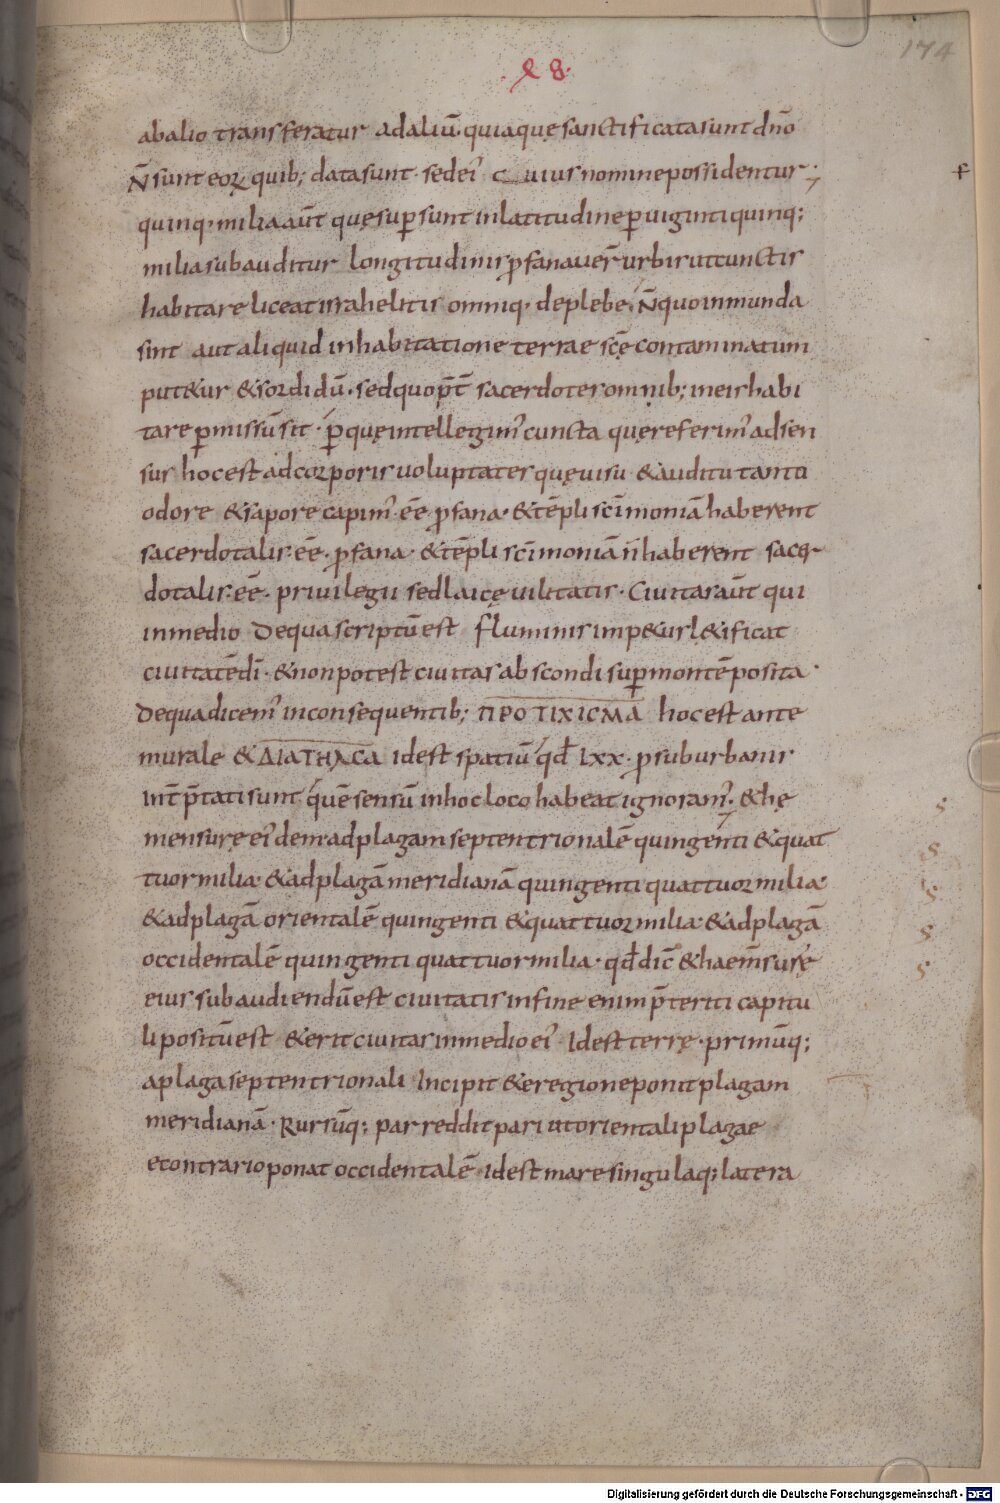 174
·l 8·
abalio transferatur adaliū· quiaquę sanctificatasunt dn̄o
N̄ sunt eoꝝ quib; datasunt · sed ei᾽ Cuius nomine possidentur·
quinq· milia aūt quę suꝑsunt inlatitudine ꝑ uiginti quinq;
milia subauditur longitudinis ꝓfana uer̄ urbis ut cunctis
habitare liceat israhelitis omniq· deplebe· N̄ quo inmunda
sint aut aliquid inhabitatione terrae scę̄ contaminatum
put&ur &sordidū· sed quo p̄t̄ sacerdotes omnib; ineis habi
tare ꝑmissū sit · ꝑ quę intellegim᾽ cuncta quę referim᾽ adsen
sus hoc est ad corporis uoluptates quę uisu &auditu tantu
odore &sapore capim᾽· eē̄ ꝓfana· &tēpli scīmoniā haberent
sacerdotalis· eē̄· ꝓfana· &tēpli scīmoniā n̄ haberent sacer
dotalis· eē̄· priuilegii sed laicę uilitatis· Ciuitas aūt qui
inmedio De qua scriptū est fluminis imp&us l&ificat
ciuitatē dī· &non potest ciuitas abscondi suꝑ montē posita·
De qua dicem᾽ inconsequentib; ΠΡΟΤΙΧΙCΜΑ hoc est ante
murale &ΔΙΑΤΗλCΑ id est spatiū qd̄ lxx· ꝓ suburbanis
int̄ p̄tati sunt quē sensū inhoc loco habeat ignoram᾽· &hę
mensurę ei᾽dem ad plagam septentrionalē quingenti &quat
tuor milia· &ad plagā meridianā quingenti quattuor milia·
&ad plagā orientalē quingenti &quattuor milia· &ad plagā
occidentalē quingenti quattuor milia· qd̄ dic̄ &hae m̄surę
eius subaudiendū est ciuitatis in fine enim p̄teriti capitu
li positū est &erit ciuitas inmedio ei᾽ Id est terrę · primūq;
aplaga septentrionali Incipit &eregione ponit plagam
meridianā · Rursūq; par reddit pari ut orientali plagae
econtrario ponat occidentalē id est mare singulaq; latera
s
s
s
s
s
Digitalisierung gefördert durch die Deutsche Forschungsgemeinschaft - DFG